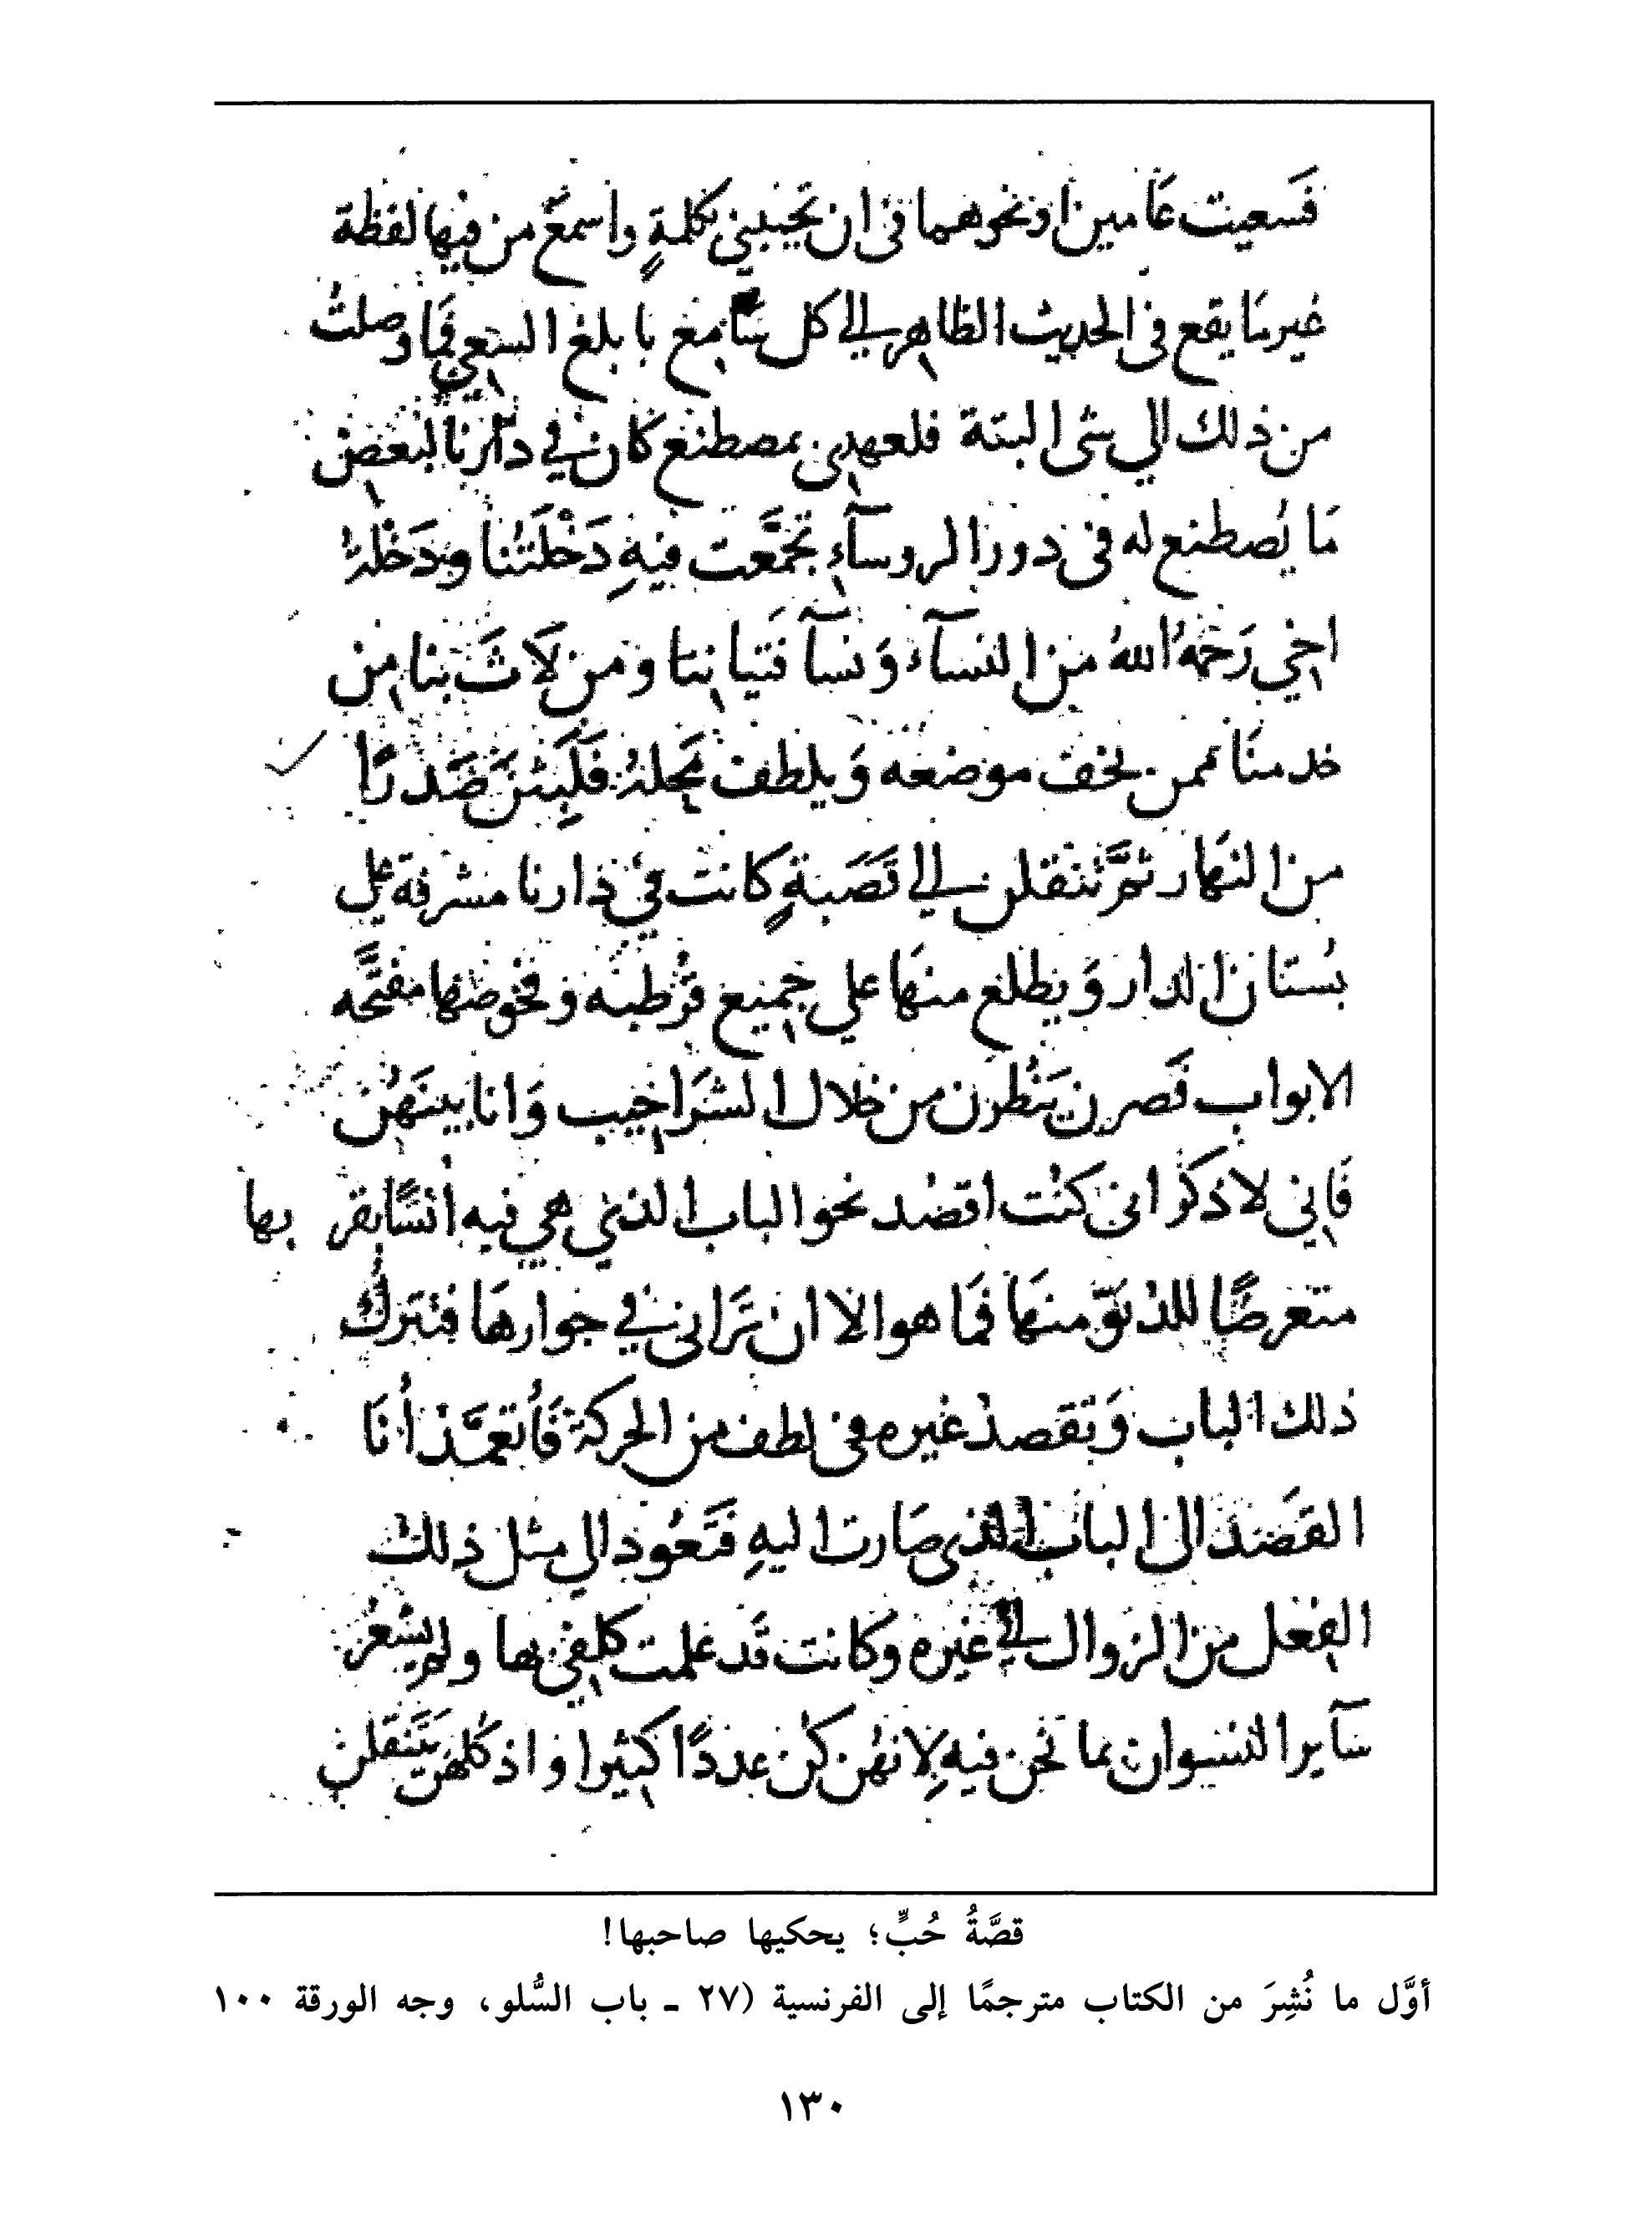 فَسعيت عَامين او نحوهما فى ان تجيبنى بكلمةٍ واسمع من فيها لفظة
غير مَا يقع فى الحديث الظاهر الي كل سَامع با بلغ السعي فَمَا وصلتُ
من ذلك الي شى البتة فلعهدى بمصطنع كان في دَارنا لبعض
مَا يُصطنع له فى دور الروسآءِ تجمَّعت فيهِ دَخْلَتُنا ودَخْلة
اخي رَحمهُ اللهُ من النسآء وَنسآ فتياننا ومن لَاثَ بنا من
خدمنَا ممن يخف موضعه وَيلطف محله فَلَبِثنَ صَدرًا
من النهَار ثمَّ تنقلن الي قَصَبةٍ كانت في دارنا مشرفة علي
بُستان الدار وَيطلع منهَا علي جميع قُرْطبه وفحوصها مفتَّحه
الابواب فَصرن يَنْظُرن من خلال الشرَاجيب وَانا بينَهُن
فَاني لاذكُرُ انى كنْت اقصُد نحو الباب الذي هي فيه اُنسًا بقربها
متعرضًا للدنوّ منهَا فَمَا هو الا ان تَرَانى في جوارهَا فتتركُ
ذلك الباب وَتقصد غيره فى لطف من الحركة فَأتعمَّد اُنَا
القصَدَ الى الباب الذى صَارت اليهِ فَتَعُود الي مثل ذلك
الفعل من الزوال الي غيره وكانت قَد علمت كلفي بها ولم يشعُر
سَآير النسوان بما نحن فيه لِانهُن كُن عددًا كثيرا واذ كلهن يَتَنقلن
قصَّةُ حُبٍّ؛ يحكيها صاحبها!
أوَّل ما نُشِرَ من الكتاب مترجمًا إلى الفرنسية (٢٧ ـ باب السُّلو، وجه الورقة ١٠٠
١٣٠